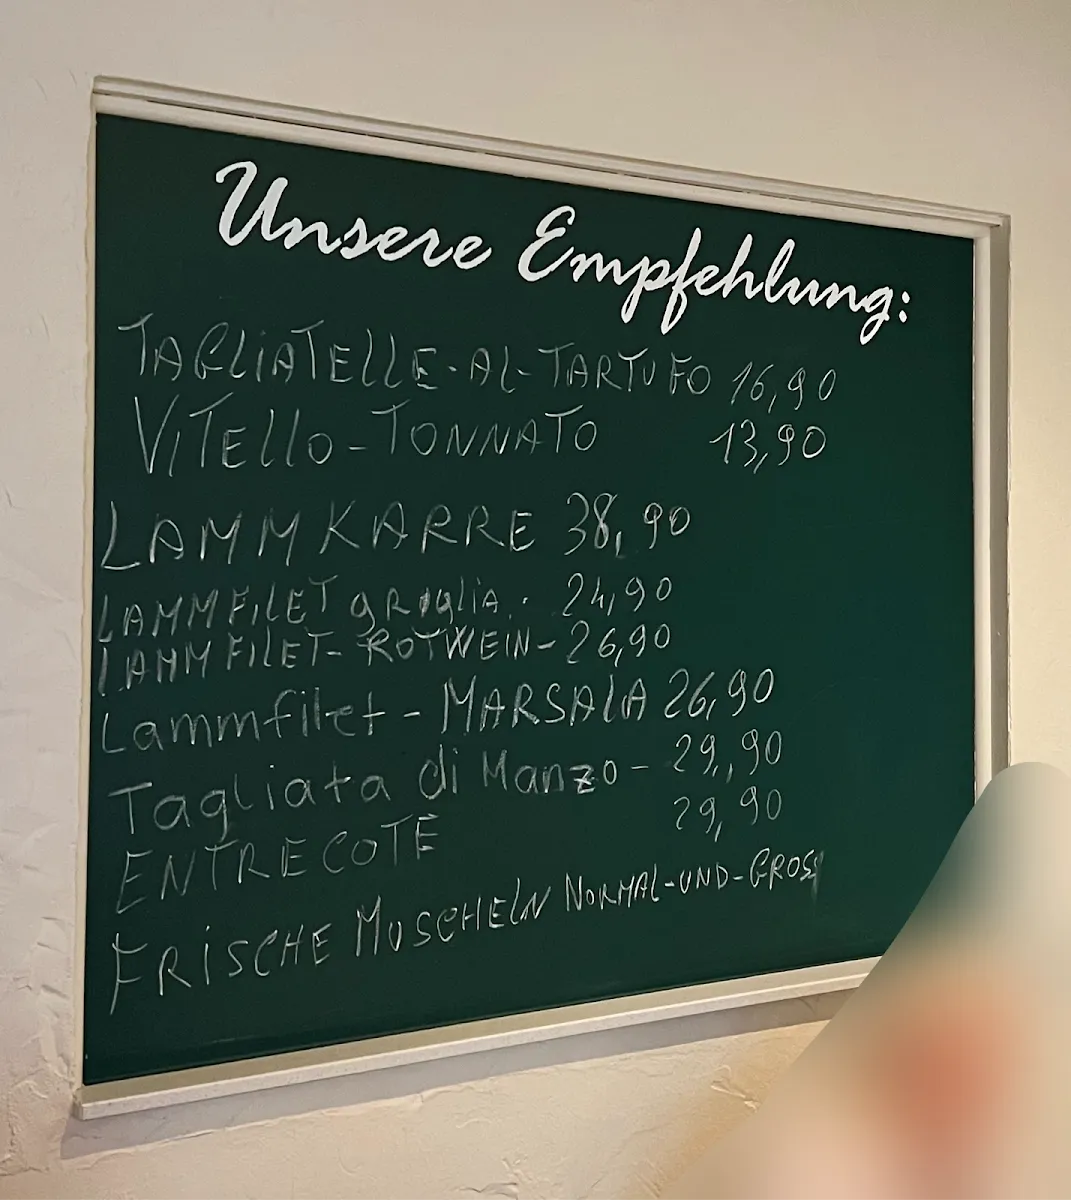 Unsere Empfehlung:
TAGLIATELLE-AL-TARTUFO 16,90
VITELLO-TONNATO 13,90
LAMMKARRE 38,90
LAMMFILET GRIGLIA. 24,90
LAMMFILET-ROTWEIN-26,90
Lammfilet-MARSALA 26,90
Tagliata di Manzo- 29,90
ENTRECOTE 29,90
FRISCHE MUSCHELN NORMAL-UND-GROSS